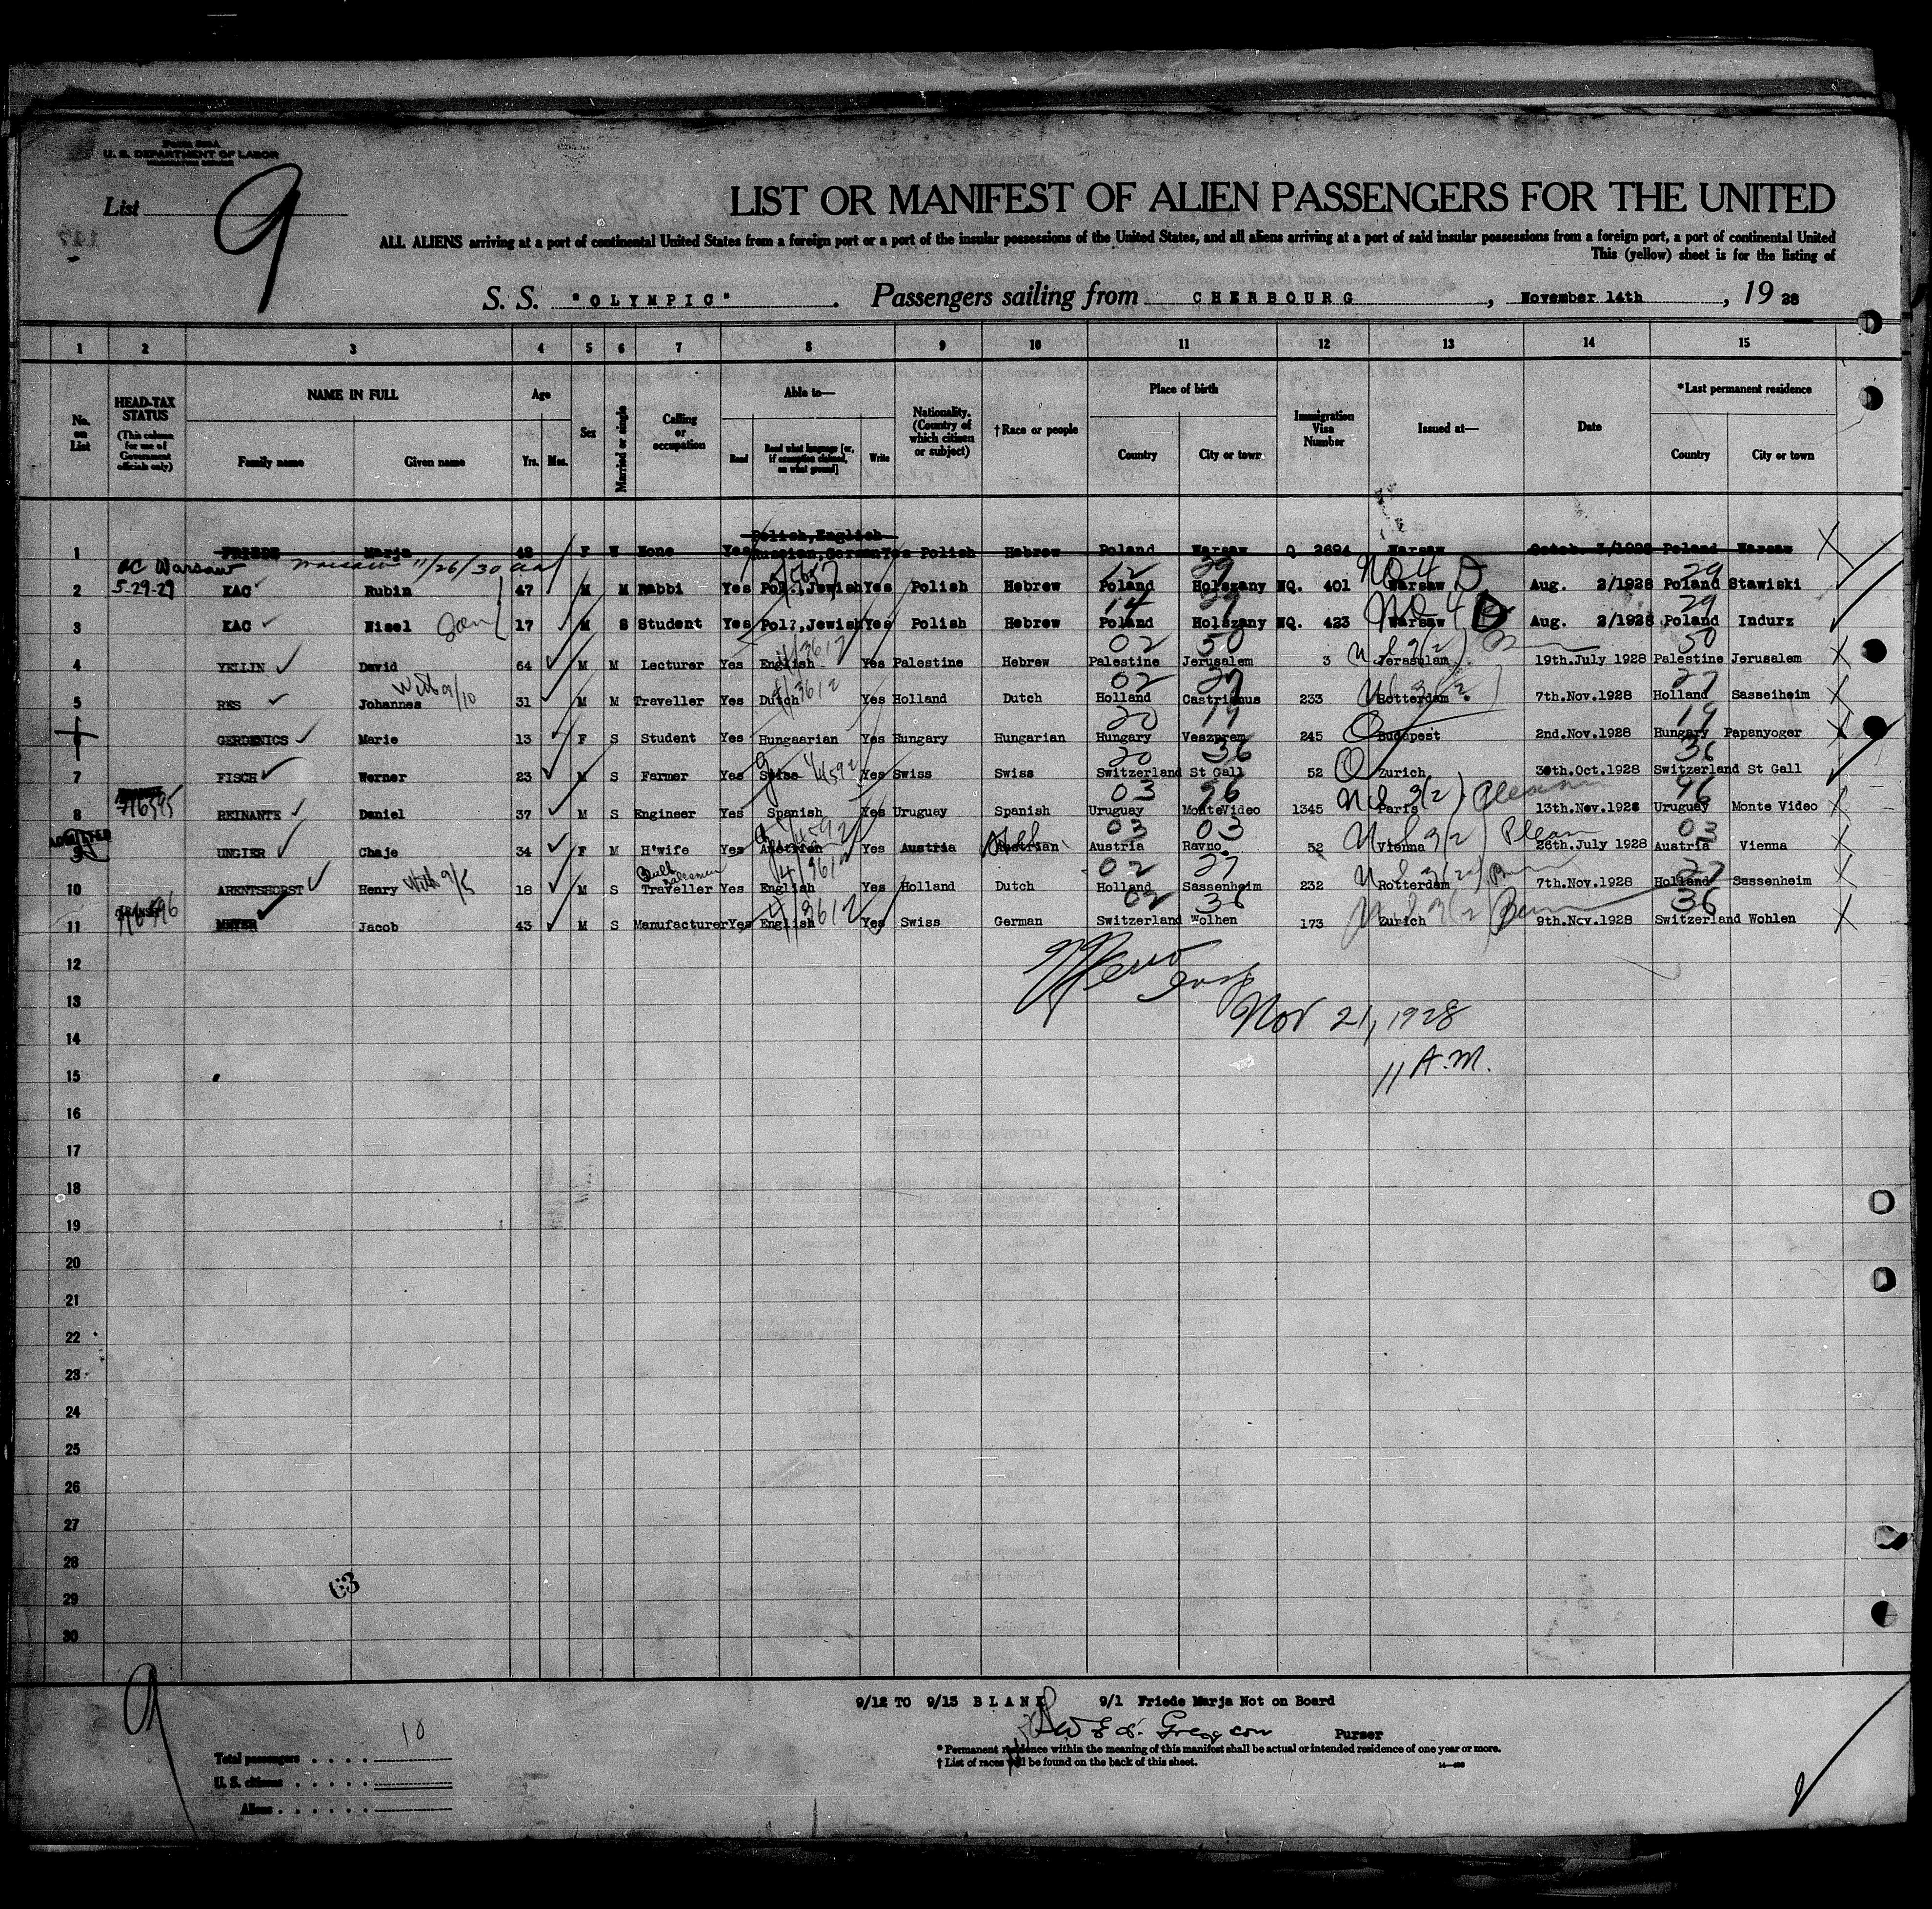 U. S. DEPARTMENT OF LABOR
List 9
LIST OR MANIFEST OF ALIEN PASSENGERS FOR THE UNITED
ALL ALIENS arriving at a port of continental United States from a foreign port or a port of the insular possessions of the United States, and all aliens arriving at a port of said insular possessions from a foreign port, a port of continental United
This (yellow) sheet is for the listing of
S. S. "OLYMPIC". Passengers sailing from CHERBOURG, November 14th, 19 28
1 2 3 4 5 6 7 8 9 10 11 12 13 14 15
No. on List
HEAD-TAX STATUS (This column for use of Government officials only)
NAME IN FULL Family name Given name
Age Yrs. Mos.
Sex
Married or single
Calling or occupation
Able to— Read Read what language [or, if exemption claimed, on what ground] Write
Nationality. (Country of which citizen or subject)
†Race or people
Place of birth Country City or town
Immigration Visa Number
Issued at—
Date
*Last permanent residence Country City or town
1 FRIEDE Marja 48 F W None Yes Polish, English Russian, German Yes Polish Hebrew Poland Warsaw Q 2694 Warsaw Poland Warsaw
Warsaw 11/26/30
2 5-29-29 KAC Rubin 47 M M Rabbi Yes Pol.?, Jewish Yes Polish Hebrew Poland Holszany NQ. 401 Warsaw Aug. 2/1928 Poland Stawiski
12 29 NQ 4 D 29
3 KAC Nisel Son 17 M S Student Yes Pol?, Jewish Yes Polish Hebrew Poland Holszany NQ. 423 Warsaw Aug. 2/1928 Poland Indurz
14 29 NQ 4 D 29
4 YELLIN David 64 M M Lecturer Yes English Yes Palestine Hebrew Palestine Jerusalem 3 Jerasulam 19th.July 1928 Palestine Jerusalem
02 50 50
5 RES Johannes With 9/10 31 M M Traveller Yes Dutch Yes Holland Dutch Holland Castricmus 233 Rotterdam 7th.Nov.1928 Holland Sasseiheim
02 27 27
6 GERDENICS Marie 13 F S Student Yes Hungaarian Yes Hungary Hungarian Hungary Veszprem 245 Budapest 2nd.Nov.1928 Hungary Papanyoger
20 19 19
7 FISCH Werner 23 M S Farmer Yes Swiss Yes Swiss Swiss Switzerland St Gall 52 Zurich 30th.Oct.1928 Switzerland St Gall
20 36 36
8 716595 REINANTE Daniel 37 M S Engineer Yes Spanish Yes Uruguay Spanish Uruguay MonteVideo 1345 Paris 13th.Nov.1928 Uruguay Monte Video
03 96 96
ADMITTED
9 UNGIER Chaje 34 F M H'wife Yes Austrian Yes Austria Austrian Austria Ravno. 52 Vienna 26th.July 1928 Austria Vienna
03 03 03
10 ARENTSHORST Henry With 9/5 18 M S Traveller Yes English Yes Holland Dutch Holland Sassenheim 232 Rotterdam 7th.Nov.1928 Holland Sassenheim
02 27 27
11 716596 MEYER Jacob 43 M S Manufacturer Yes English Yes Swiss German Switzerland Wolhen 173 Zurich 9th.Nov.1928 Switzerland Wohlen
02 36 36
12
13 Nov 21, 1928
14
15 11 A.M.
16
17
18
19
20
21
22
23
24
25
26
27
28
29 63
30
9/12 TO 9/13 BLANK 9/1 Friede Marja Not on Board
Purser
9
Total passengers . . . . 10
U. S. citizens . . . . .
Aliens . . . . . .
* Permanent residence within the meaning of this manifest shall be actual or intended residence of one year or more.
† List of races will be found on the back of this sheet.